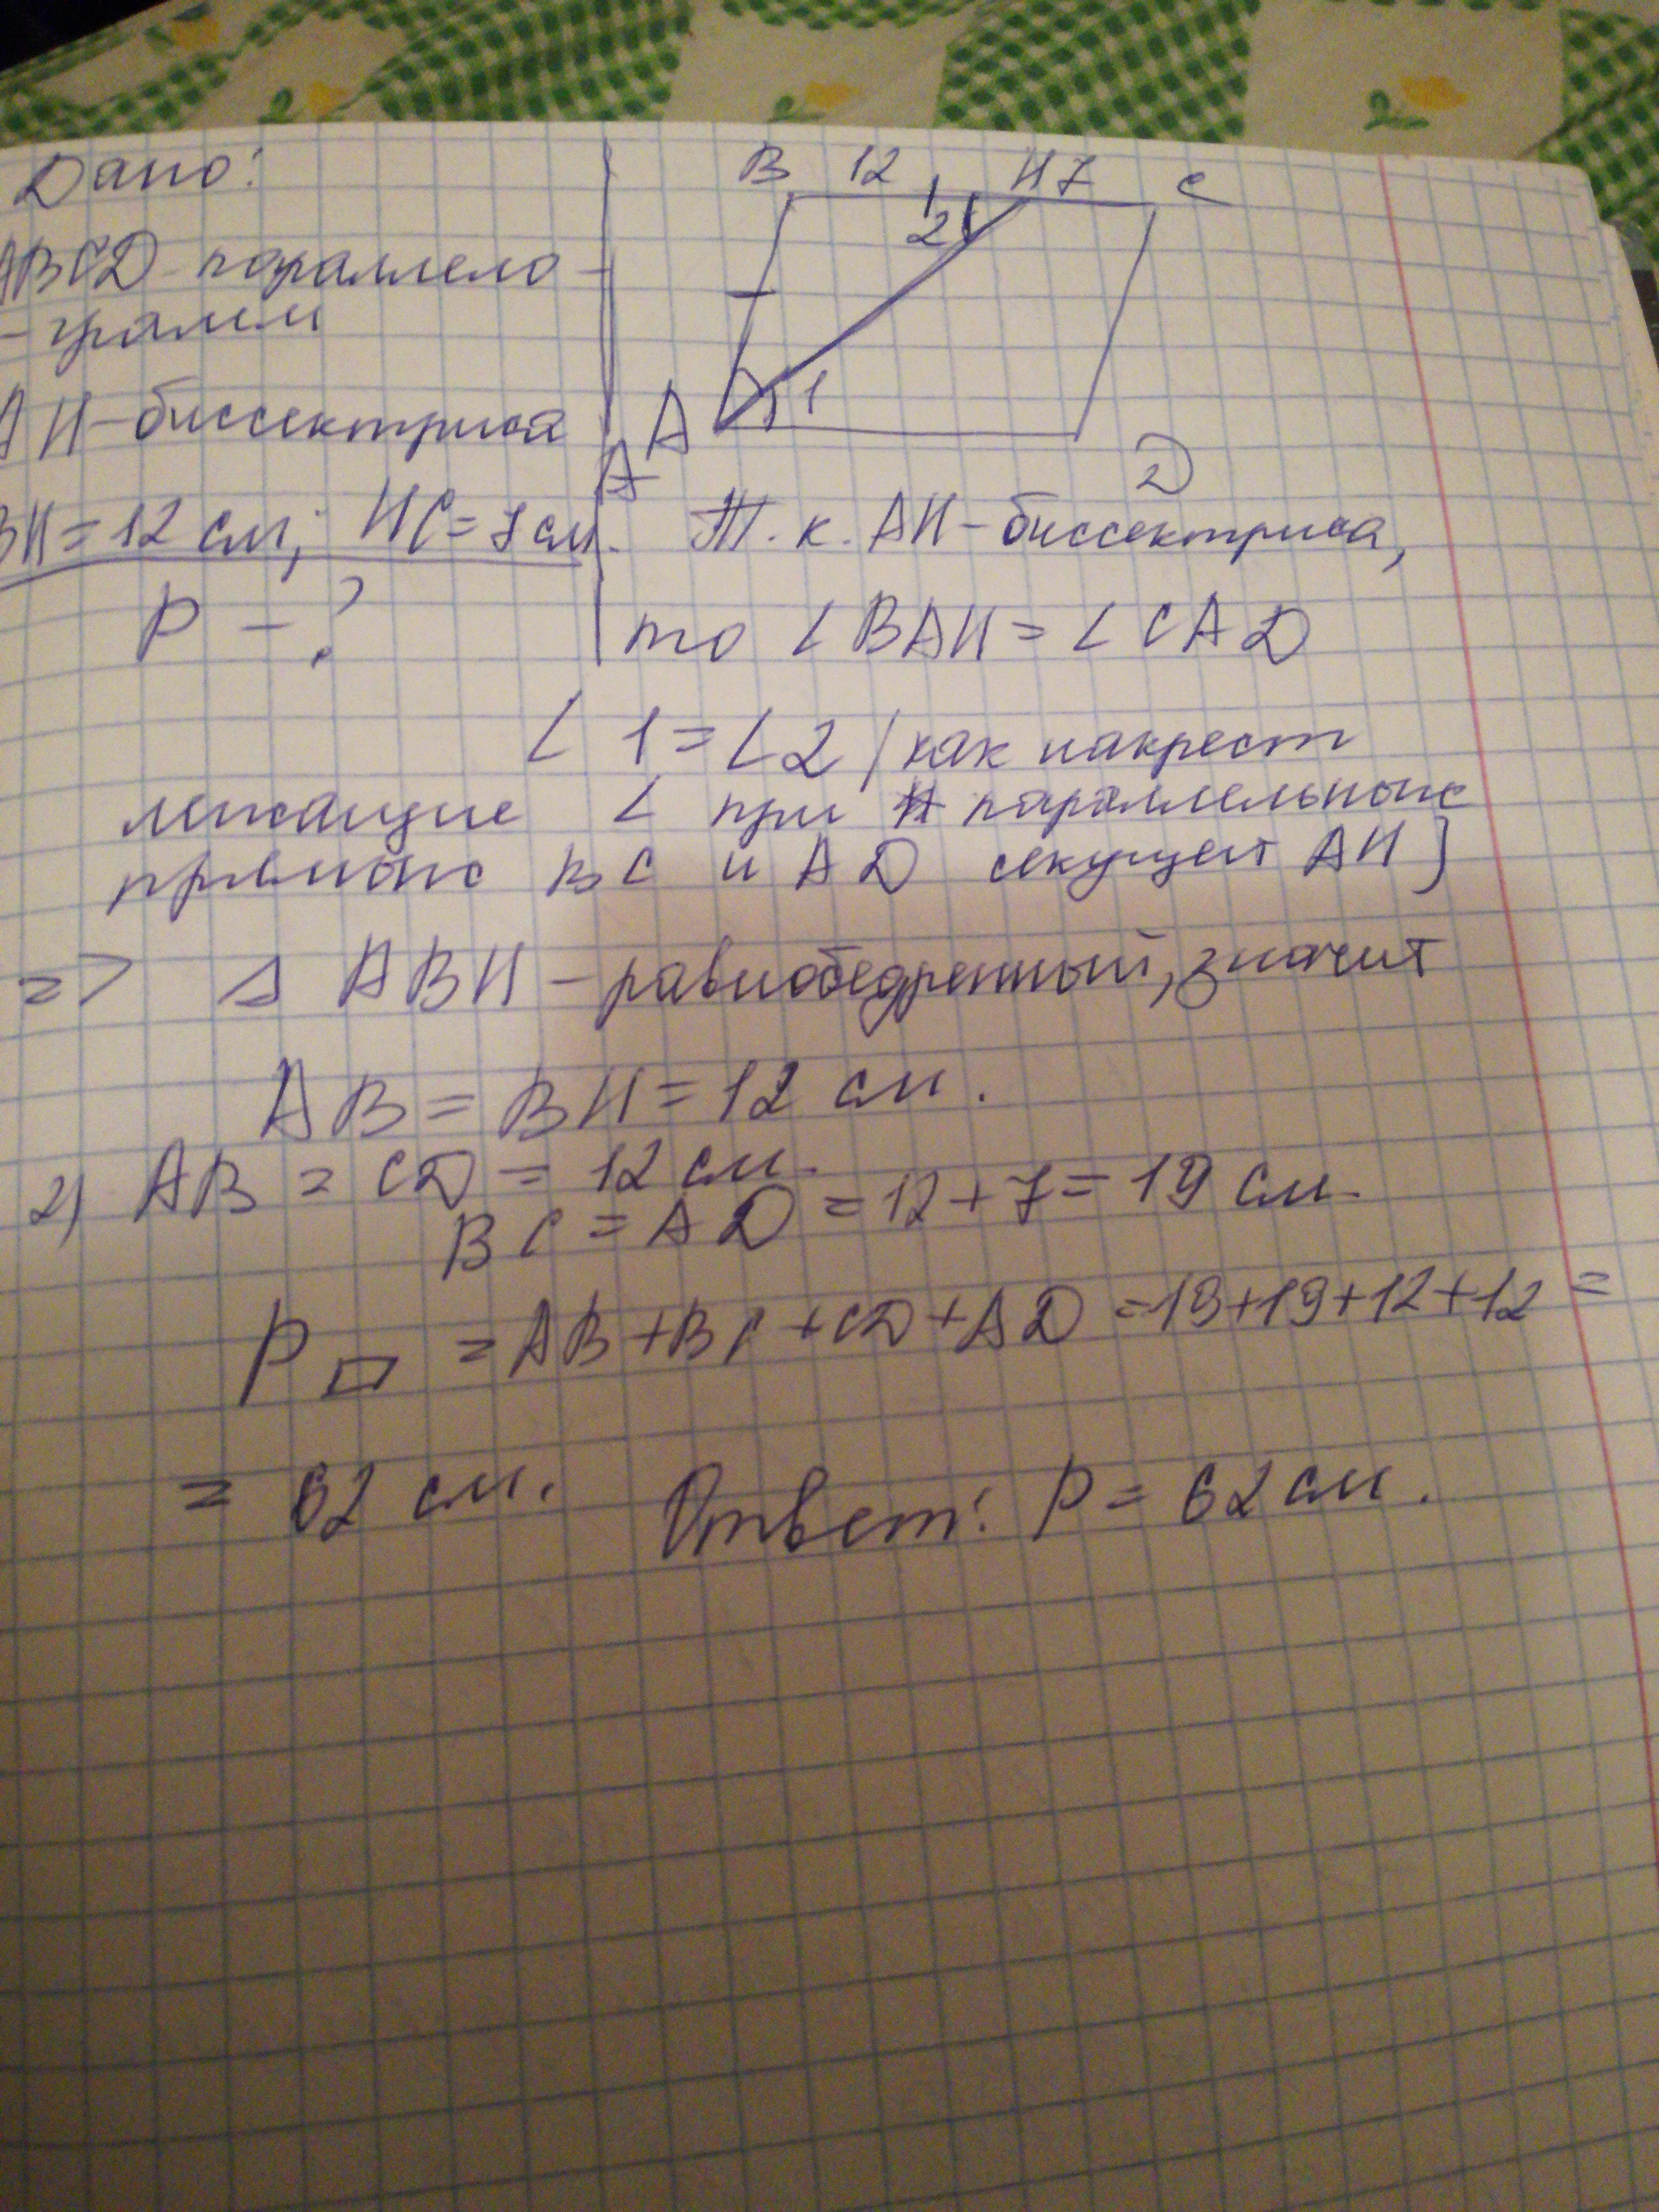 Дано:
ABCD-параллело-
-грамм
AH-биссектриса
BH=12 см; HC=7см.
P-?
B 12 H 7 C
2
1
A
D
A
Т.к. AH-биссектриса,
то ∠BAH=∠CAD
∠1=∠2 (как накрест
лежащие ∠ при параллельных
прямых BC и AD секущей AH)
=> △ABH-равнобедренный, значит
AB=BH=12 см.
2) AB=CD=12 см.
BC=AD=12+7=19 см.
P▱=AB+BC+CD+AD=19+19+12+12=
=62 см. Ответ: P=62см.